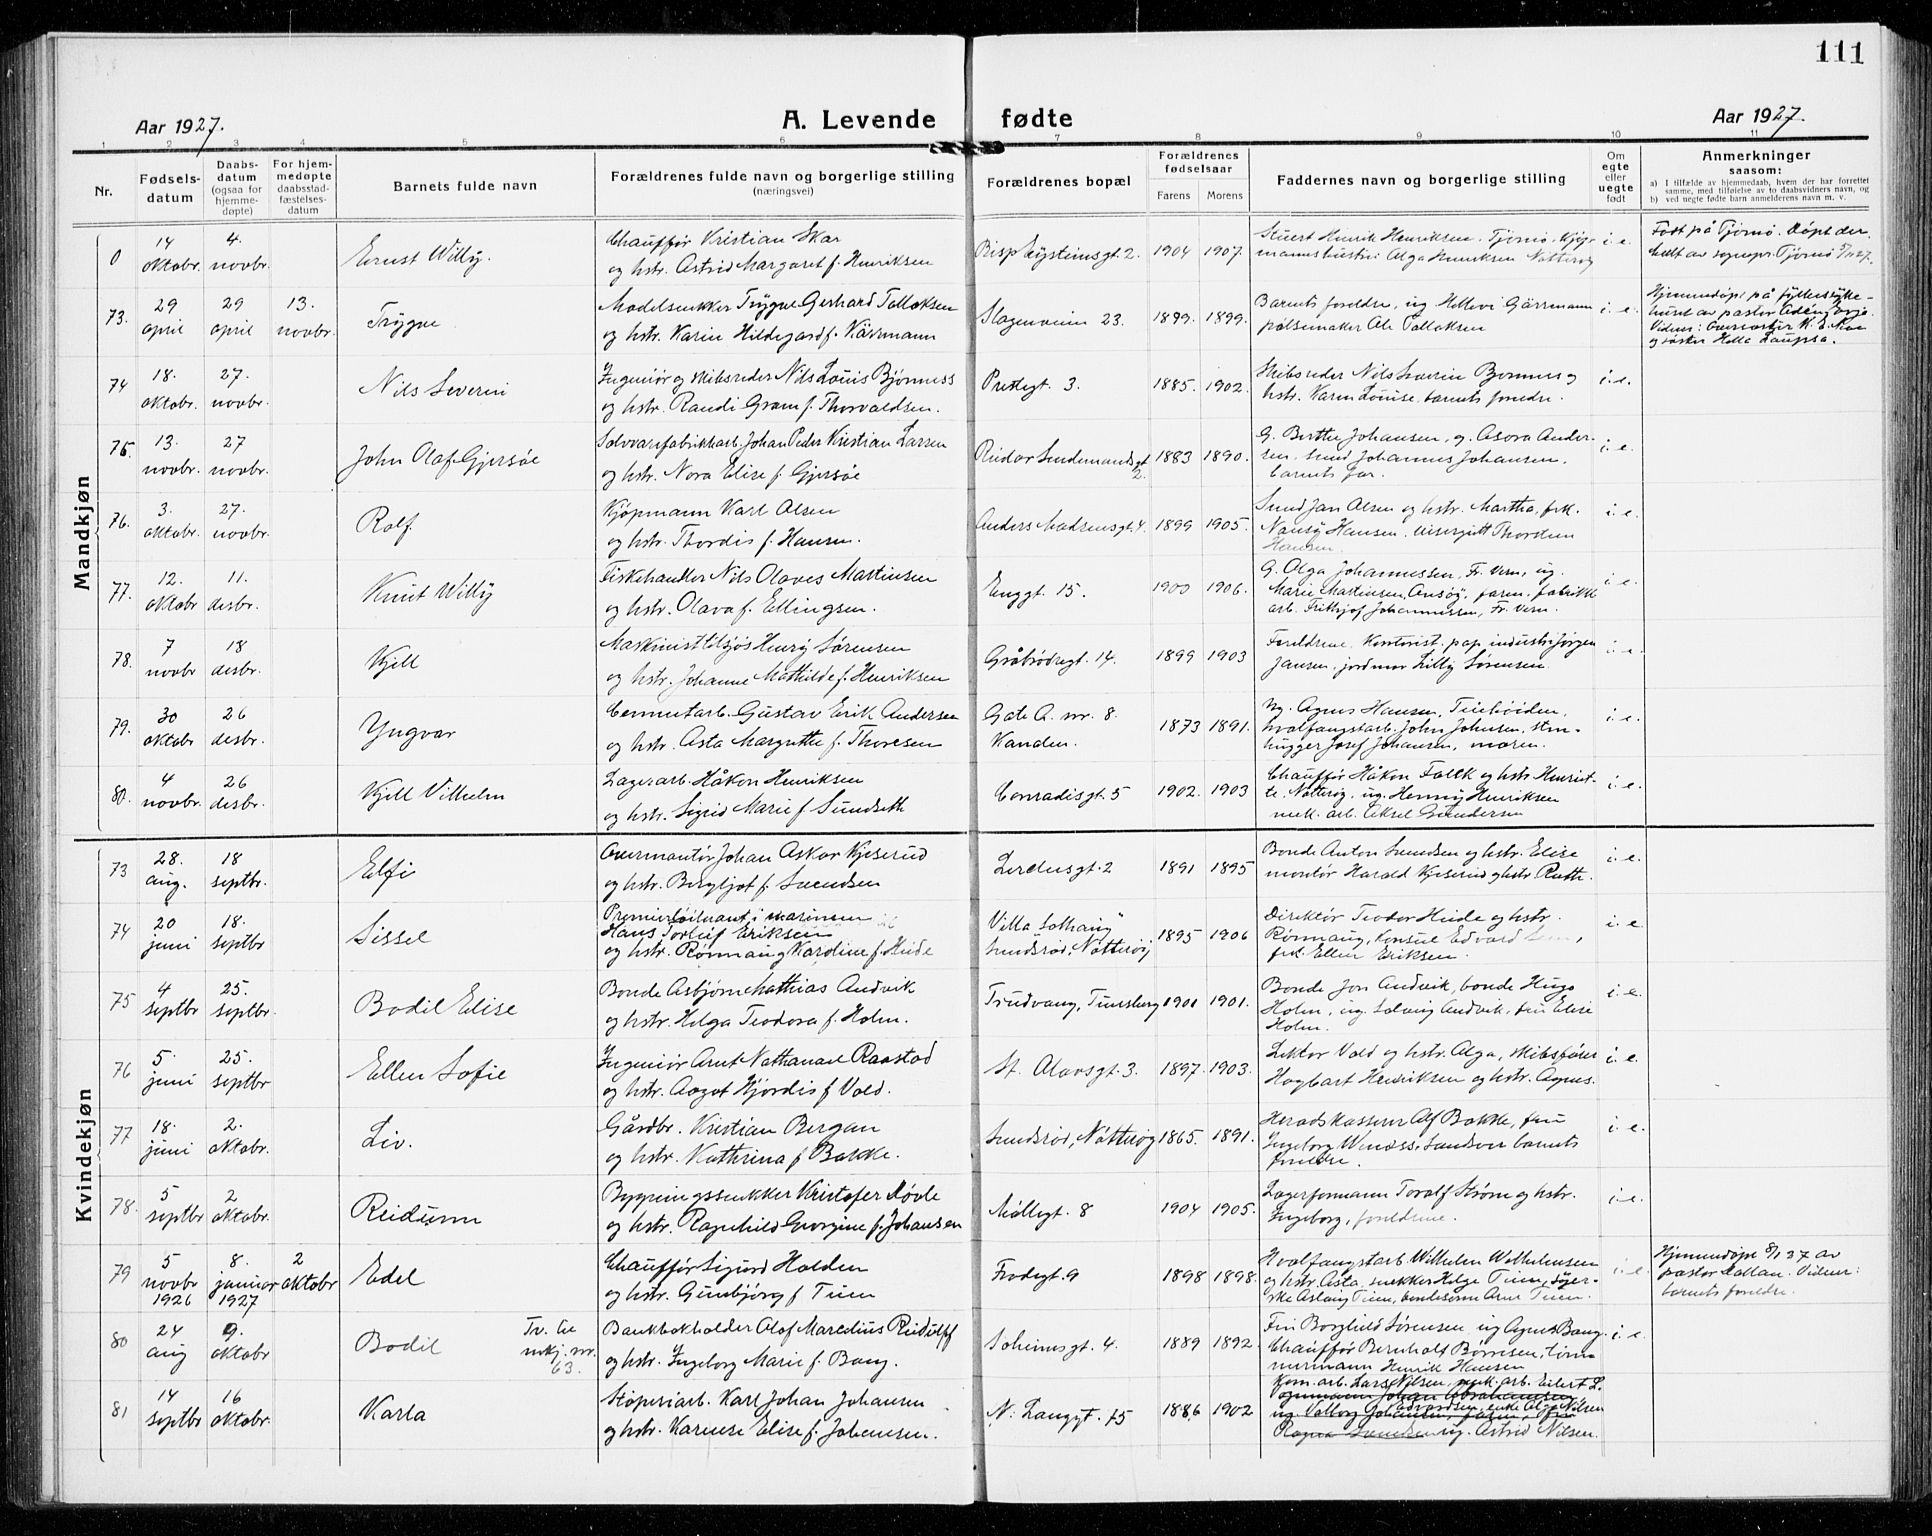 111
Aar 1927.
A. Levende fødte
Aar 1927.
1 2 3 4 5 6 7 8 9 10 11
Nr.
Fødsels-
datum
Daabs-
datum
(ogsaa for
hjemme-
døpte)
For hjem-
medøpte
daabsstad-
fæstelses-
datum
Barnets fulde navn
Forældrenes fulde navn og borgerlige stilling
(næringsvei)
Forældrenes bopæl
Forældrenes
fødselsaar
Farens Morens
Faddernes navn og borgerlige stilling
Om
egte
eller
uegte
født
Anmerkninger
saasom:
a) I tilfælde av hjemmedaab, hvem der har forrettet
samme, med tilføielse av to daabsvidners navn, og
b) ved uegte fødte barn anmelderens navn m. v.
Mandkjøn
0
14 oktobr.
4. novbr.
Ernst Willy.
Chauffør Kristian Skar
og hstr. Astrid Margaret f. Henriksen
Bisp Eysteinsgt. 2.
1904 1907.
Stuert Henrik Henriksen. Tjømø. Kjøp-
mannshustru Olga Henriksen Nøtterøy
i. e.
Født på Tjømø. Døpt der-
av sognepr. Tjømø
73.
29 april
29 april
13. novbr.
Trygve
Modelsnekker Trygve Gerhard Tollaksen
og hstr. Karin Hildegard f. Kärrmann
Slagenveien 23.
1899. 1899.
Barnets foreldre, ug. Kärrmann
pølsemaker Ole Tollaksen
i. e.
Hjemmedøpt på fylkessyke-
huset av pastor
og søster
74
18. oktobr.
27. novbr.
Nils Severin
Ingeniør og skibsreder Nils Louis Bjønness
og hstr. Randi Gram f. Thorvaldsen.
Prestegt. 3.
1885. 1902.
Skibsreder Nils Severin Bjønness og
hstr. Karen Louise, barnets foreldre.
i. e.
75.
13. novbr.
27 novbr.
John Olaf Gjersøe
Sølvvarefabrikkarb. Johan Peder Kristian Larsen
og hstr. Nora Elise f. Gjersøe
Reidar Sendemandsgt. 2.
1883 1890.
G. Berthe Johansen, g. Asora Ander-
sen, smed Johannes Johansen,
barnets far.
i. e.
76.
3. oktobr.
27. novbr.
Rolf
Kjøpmann Karl Olsen
og hstr. Thordis f. Hansen.
Anders Madsensgt. 4.
1899 1905.
Smed Jan Olsen og hstr. Martha, frk.
Nancy Hansen. visergutt Thorstein
Hansen.
i. e.
77.
12. oktobr
11. desbr.
Knut Willy
Fiskehandler Nils Olaves Martinsen
og hstr. Olava f. Ellingsen.
Enggt. 15.
1900 1906.
G. Olga Johannessen, Fr. Vern, ug.
Marie Martinsen, faren, fabrikk-
arb. Frithjof Johannessen, Fr. Vern.
i. e.
78.
7 novbr
18 desbr.
Kjell
Maskinist tilsjøs Henry Sørensen
og hstr. Johanne Mathilde f. Henriksen
Gråbrødregt. 14.
1899 1903
Foreldrene. Kontorist, pap. industri Jørgen
Jansen, jordmor Lilly Sørensen.
i. e.
79.
30 oktobr
26 desbr.
Yngvar
Cementarb. Gustav Erik Andersen
og hstr. Asta Margrethe f. Thoresen
Gate A. nr. 8. Kanalen.
1873 1891.
Ug. Agnes Hansen,
hvalfangstarb. John Johnsen, sten-
hugger Josef Johansen, moren.
i. e.
80.
4 novbr.
26 desbr.
Kjell Vilhelm
Lagerarb. Håkon Henriksen
og hstr. Sigrid Marie f. Sundseth
Conradisgt. 5
1902. 1903
Chauffør Håkon Falck og hstr. Henriet-
te, Nøtterøy, ug. Henny Henriksen
mek. arb. Aksel Gundersen
i. e.
Kvindekjøn
73
28. aug.
18 septbr.
Elfi
Overmontør Johan Oskar Kjeserud
og hstr. Bergljot f. Svendsen
Lerdusgt. 2
1891 1895
Bonde Anton Svendsen og hstr. Elise
montør Harald Kjeserud og hstr. Ruth.
i. e.
74
20 juni
18. septbr
Sissel
Premierløitnant i marinen
Hans Torleif Eriksen
og hstr. Rønnaug Karoline f. Heide
Villa "Solhaug" Smidsrød, Nøtterøy
1895 1906
Direktør Teodor Heide og hstr.
Rønnaug, Konsul Edvard
frk. Ellen Eriksen.
i. e.
75
4 septbr
25. septbr.
Bodil Elise
Bonde Asbjørn Mathias Andvik
og hstr. Helga Teodora f. Holm.
Trudvang, Tunsberg
1901 1901.
Bonde Jon Andvik, bonde Hugo
Holm, ug. Solveig Andvik, fru Elise
Holm.
i. e.
76
5. juni
25. septbr
Ellen Sofie
Ingeniør Arnt Nathanael Raastad
og hstr. Aagot Hjørdis f. Vold.
St. Olavsgt. 3.
1897. 1903.
Lektor Vold og hstr. Olga, skibsfører
Hagbart Henriksen og hstr. Agnes.
i. e.
77
18. juni
2. oktobr.
Liv.
Gårdbr. Kristian Bergan
og hstr. Kathrina f. Bakke.
Smidsrød, Nøtterøy
1865. 1891.
Heradskasserer Alf Bakke, fru
Ingeborg Sandver barnets
foreldre.
i. e.
78.
5 septbr
2 oktobr.
Reidunn
Bygningssnekker Kristofer Løvle
og hstr. Ragnhild Georgine f. Johansen
Møllegt. 8
1904 1905.
Lagerformann Toralf Strøm og hstr.
Ingeborg, foreldrene.
i. e.
79
5 novbr 1926
8. januar 1927
2 oktobr
Edel
Chauffør Sigurd Holden
og hstr. Gunbjørg f. Tveen
Frodegt. 9
1898 1898.
Hvalfangstarb Wilhelm Wilhelmsen
og hstr. Asta, snekker Helge Tveen, syer-
ske Aslaug Tveen, bondesønn Arne Tveen.
i. e.
Hjemmedøpt 8/1 27 av
pastor Kallan. Vidner:
barnets foreldre.
80
24 aug
9. oktobr
Bodil
Tv. til mkj. nr. 63.
Bankbokholder Olaf Maredius Reidulff
og hstr. Ingeborg Marie f. Bang.
Solheimsgt. 4.
1889 1892
Fru Borghild Sørensen ug Agnes Bang.
Chauffør Bernholf Børresen, tøm-
mermann Henrik Hansen
i. e.
81
14 septbr
16 oktobr.
Karla
Støperiarb. Karl Johan Johansen
og hstr. Karense Elise f. Johansen.
N. Langgt. 75
1886 1902
Kom. arb. Lars Nilsen, mek. arb. Eilert L.
Edvardsen, enke Olga Nilsen
ug. Astrid Nilsen.